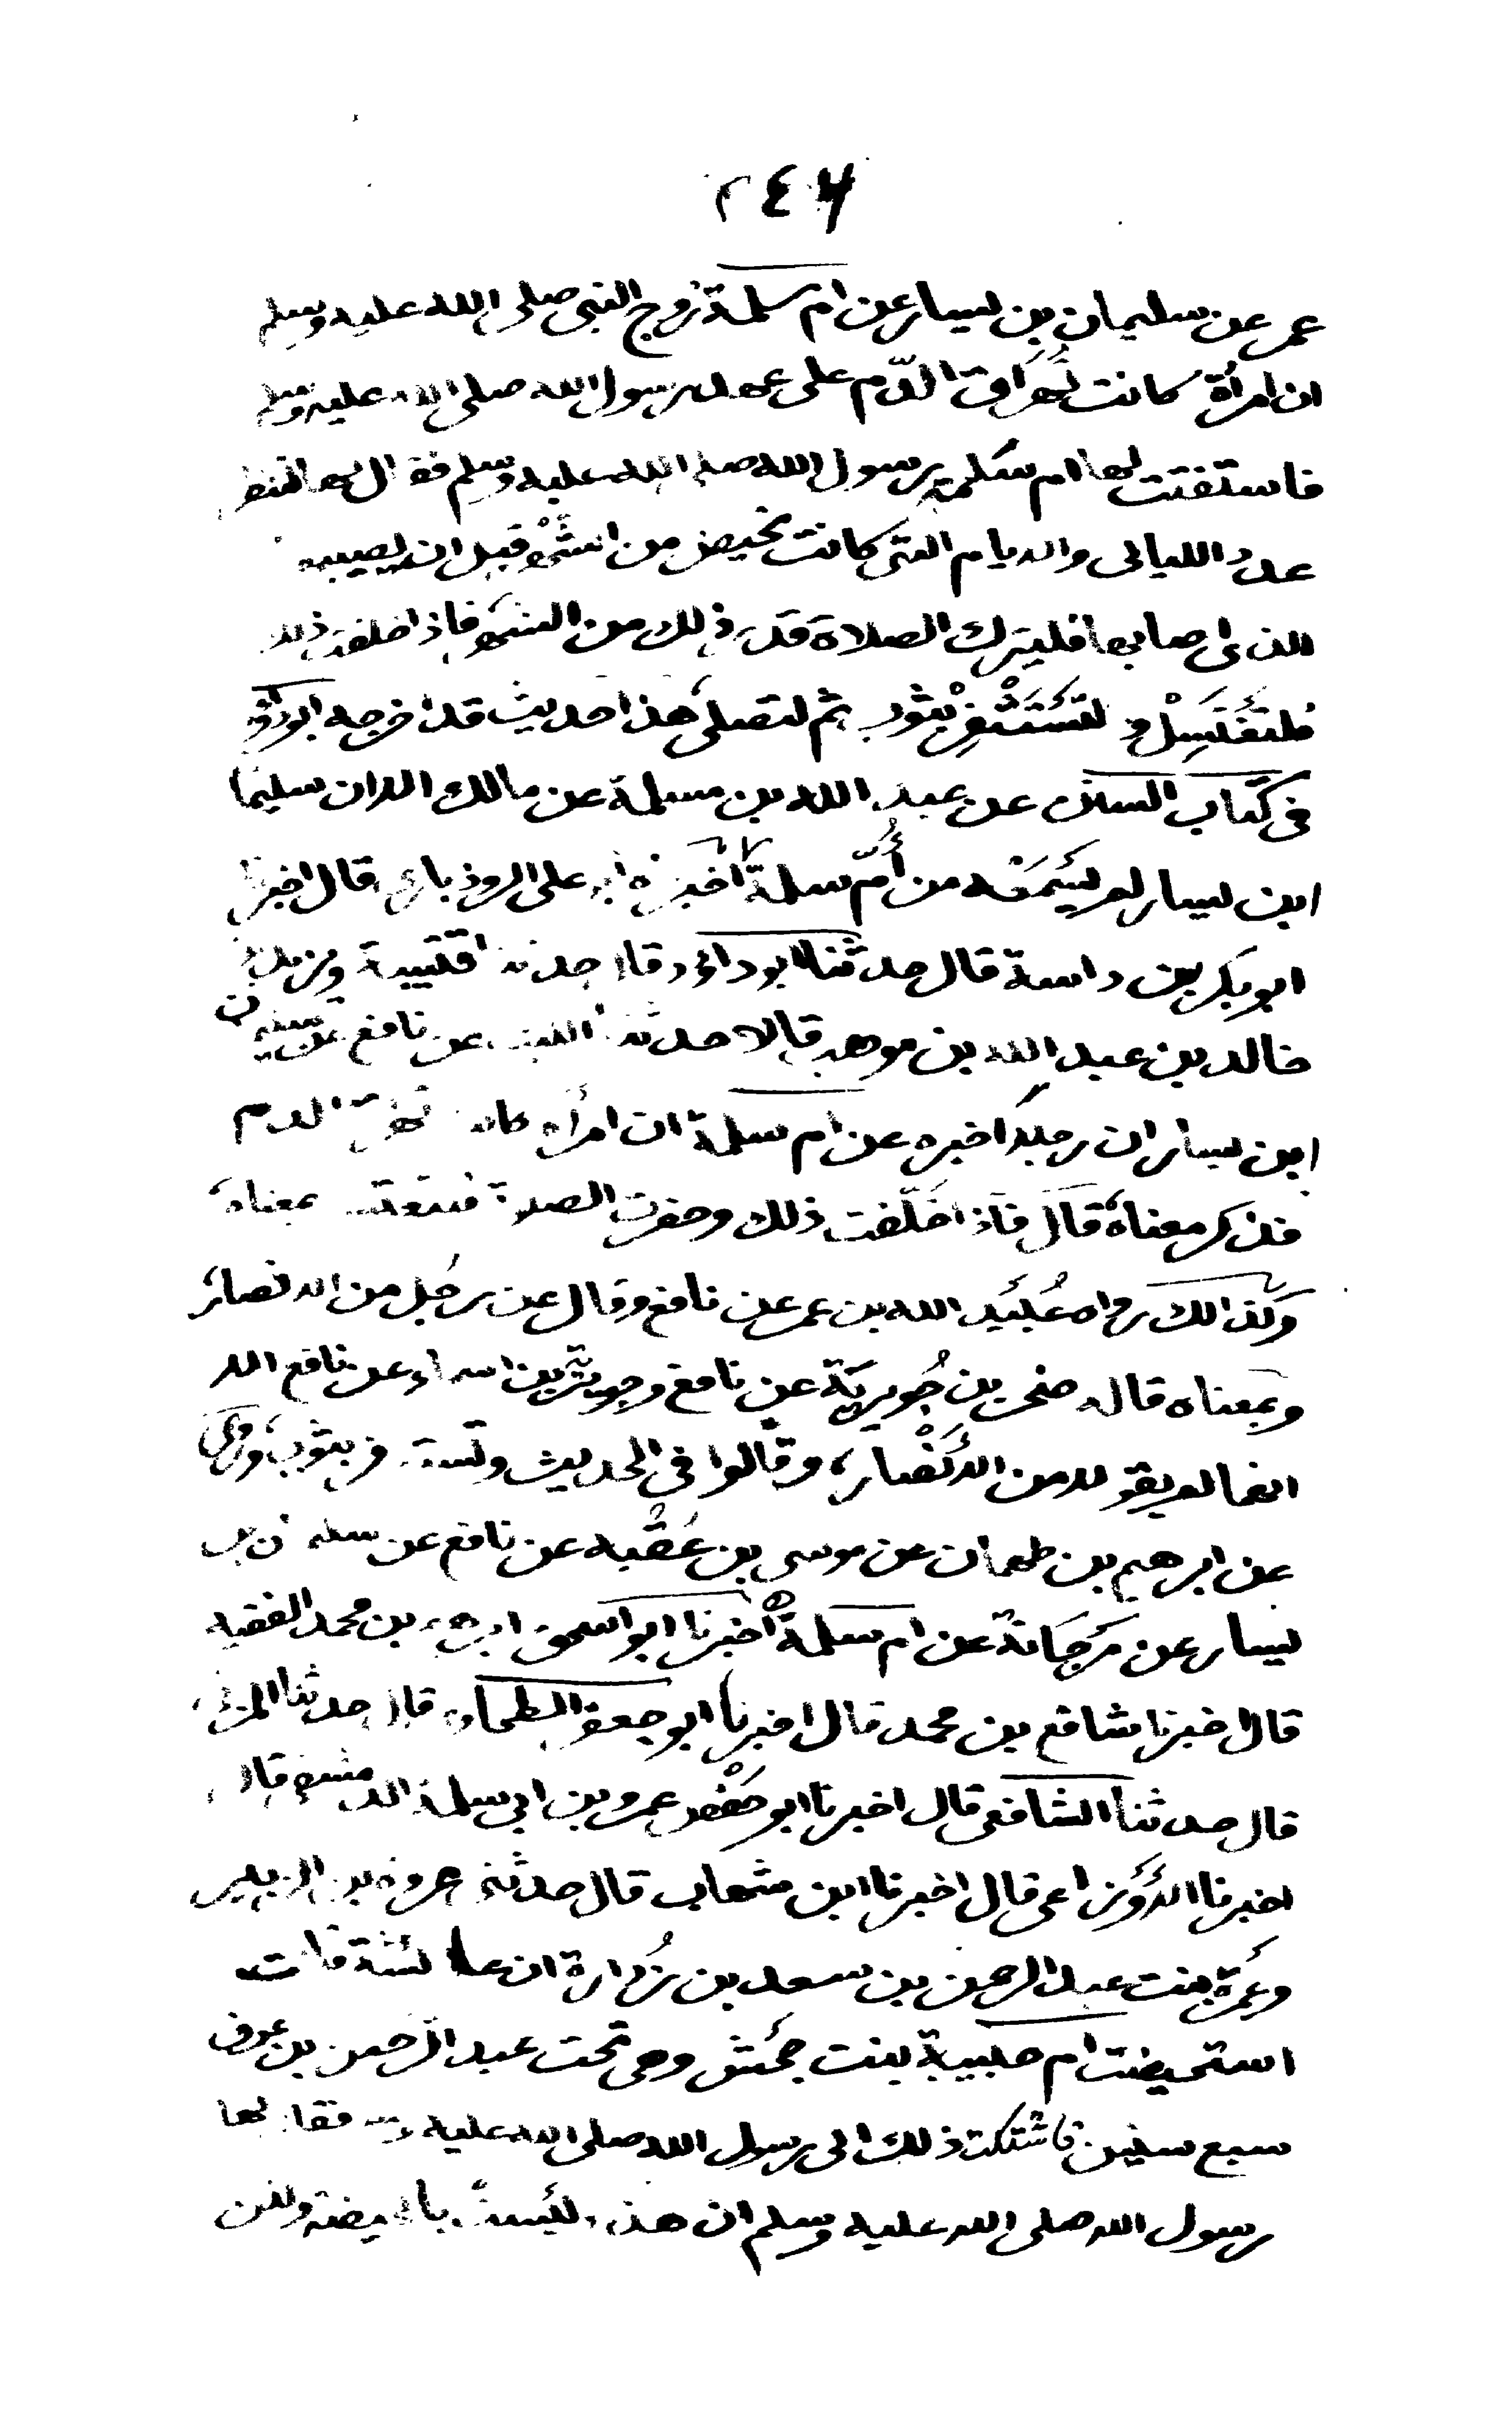 ٢٤٦
عمر عن سليمان بن يسار عن ام سلمة زوج النبى صلى الله عليه وسلم
ان امرأة كانت تُهَرَاق الدّم على عهد رسول الله صلى الله عليه وسلم
فاستفتت لها ام سلمة رسول الله صلى الله عليه وسلم فقال لها لتنظر
عدد الليالى والايام التى كانت تحيض من الشهر قبل ان يصيبها
الذى اصابها فليترك الصلاة قدر ذلك من الشهر فاذا خلفت ذلك
فلتغتَسِلْ و لتَسْتَثْفِرْ بثوب ثم لتصلى هذا حديث قد اخرجه ابو داؤد
فى كتاب السنن عن عبد الله بن مسلمة عن مالك الا ان سليمان
ابن يسار لم يَسْمَعْه من أُمّ سلمة اخبرناه ابو على الروذبارى قال اخبرنا
ابو بكر بن داسة قال حدثنا ابو داؤد قال حدثنا قتيبة ويزيد بن
خالد بن عبد الله بن موهب قالا حدثنا الليث عن نافع عن سليمن
ابن يسار ان رجلا اخبره عن ام سلمة ان امرأة كانت تهراق الدم
فذكر معناه قال فاذا خلّفت ذلك وحضرت الصلاة فلتغتسل بمعناه
وكذالك رواه عُبَيْد الله بن عمر عن نافع وقال عن رجل من الانصار
وبمعناه قاله صخر بن جُويرِيَة عن نافع وجويرية بن اسماء عن نافع الا
انهما لم يقولا من الأَنْصار، وقالوا فى الحديث وتستثفر بثوب، وروى
عن ابرهيم بن طهمان عن موسى بن عُقْبه عن نافع عن سليمان بن
يسار عن مَرجَانة عن ام سلمة اخبرنا ابو اسحق ابرهيم بن محمد الفقيه
قال اخبرنا شافع بن محمد قال اخبرنا ابو جعفر الطحاوى قال حدثنا المزنى
قال حدثنا الشافعى قال اخبرنا ابو حَفْص عمرو بن ابى سلمة الدمشقى قال
اخبرنا الأَوْزاعى قال اخبرنا ابن شهاب قال حدثنى عروة بن الزبير
وعَمْرة بنت عبد الرحمن بن سعد بن زُرارة ان عائشة قالت
استحيضت ام حبيبة بنت جحْش وهى تحت عبد الرحمن بن عوف
سبع سنين فاشتكت ذلك الى رسول الله صلى الله عليه وسلم فقال لها
رسول الله صلى الله عليه وسلم ان هذه ليست بالحيضة ولكن